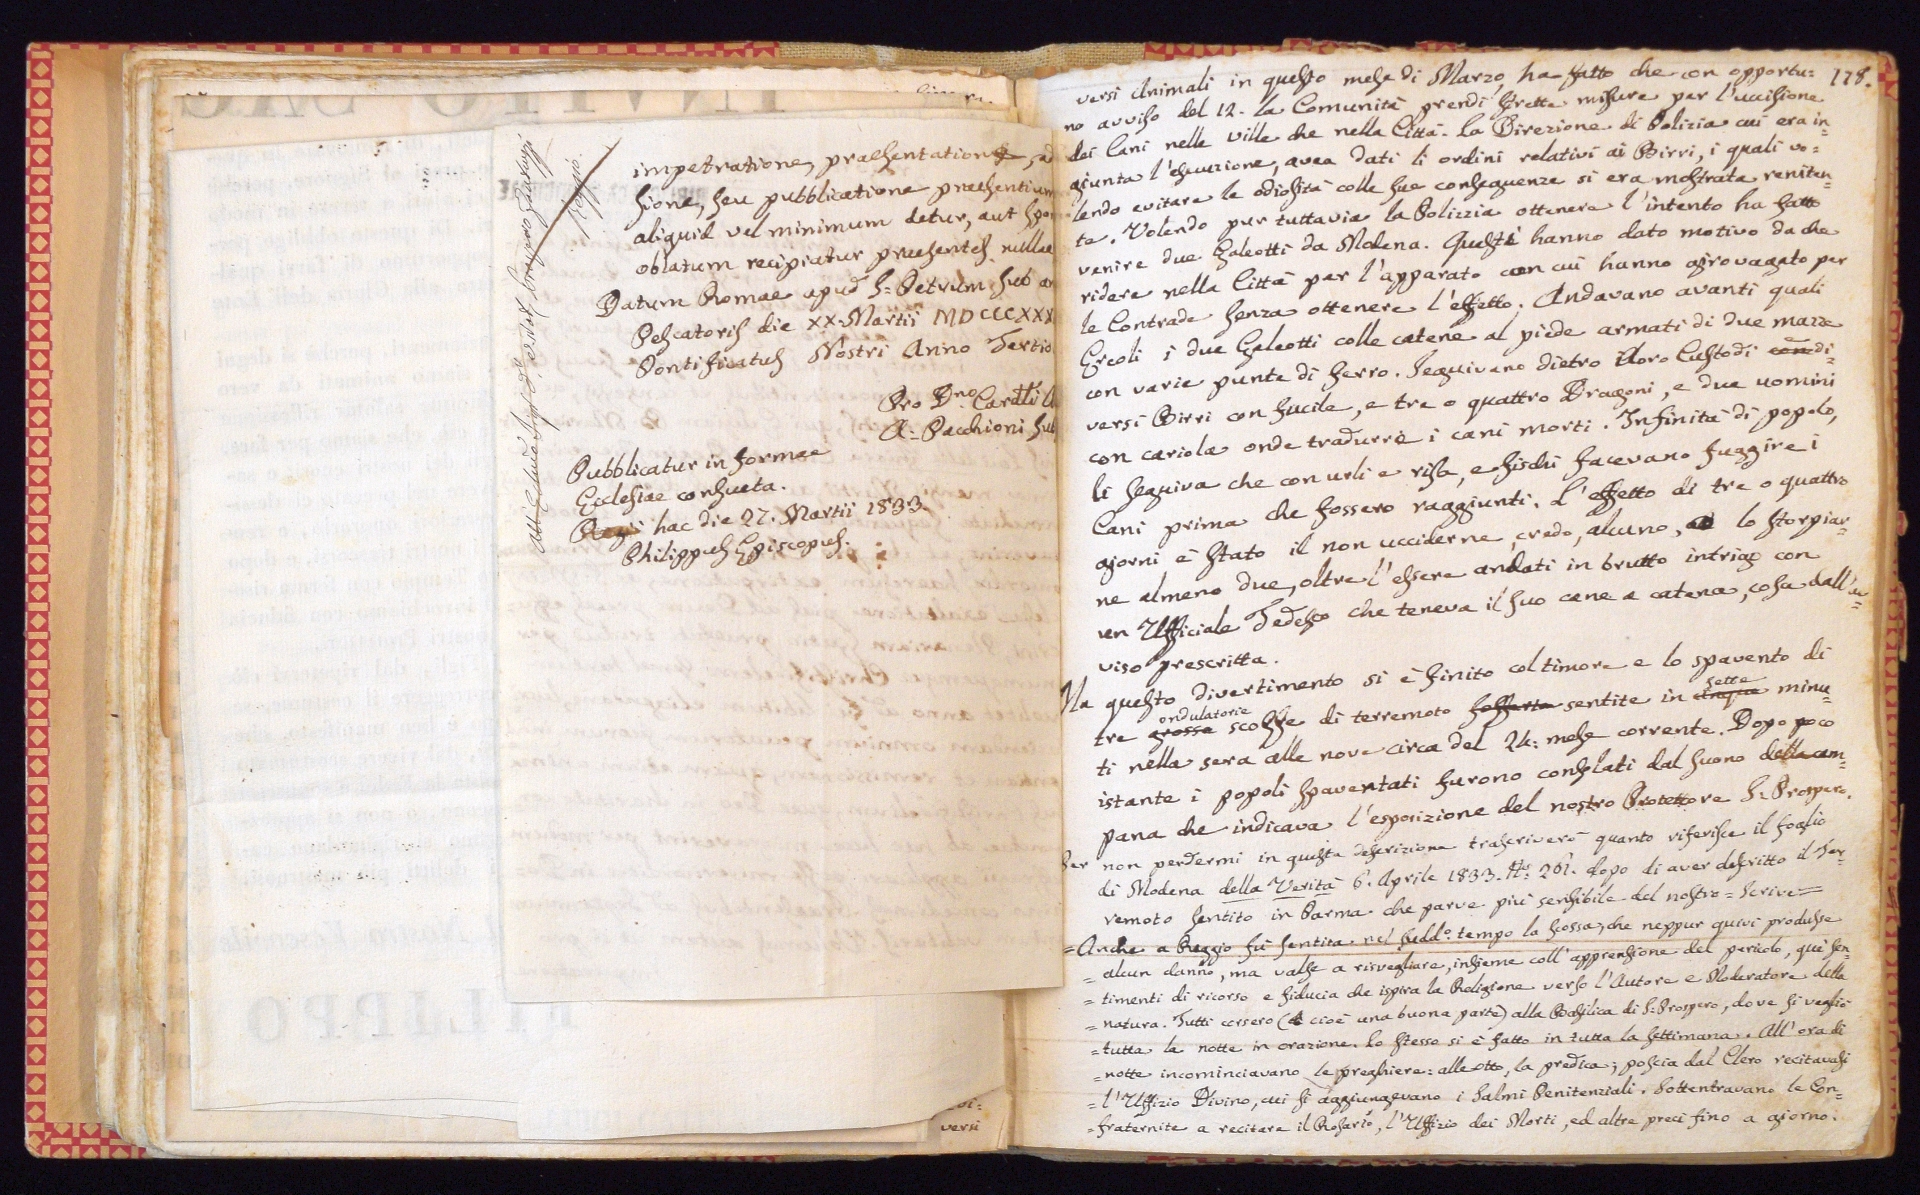 impetratione, praesentatione
sione, seu pubblicatione praesentium
aliquid vel minimum detur, aut spon
oblatum recipiatur praesentes nullae
Datum Romae apud S: Petrum sub an
Pescatoris die XX. Martii MDCCCXXX
Pontificatus Nostri Anno Tertio
Pro Dno. Cardli
A. Pacchioni Sub
Pubblicatur in forma
Ecclesiae consueta.
Regii hac die 27. Martii 1833.
Philippus Episcopus.
Reggio
versi
178.
versi Animali in questo mese di Marzo ha fatto che con opportu=
no avviso del 12. la Comunità prendi strette misure per l'uccisione
dei Cani nelle ville che nella Città. La Direzione di Polizia cui era in=
giunta l'esecuzione, avea dati li ordini relativi ai Birri, i quali vo=
lendo evitare le odiosità colle sue conseguenze si era mostrata reniten=
te. Volendo pur tuttavia la Polizzia ottenere l'intento ha fatto
venire due Galeotti da Modena. Questi hanno dato motivo da che
ridere nella Città per l'apparato con cui hanno girovagato per
le Contrade senza ottenere l'effetto. Andavano avanti quali
Ercoli i due Galeotti colle catene al piede armati di due mazze
con varie punte di ferro. Seguivano dietro i loro Custodi con di=
versi Birri con fucile, e tre o quattro Dragoni, e due uomini
con cariola onde tradurre i cani morti. Infinità di popolo,
li seguiva che con urli e risa, e fischi facevano fuggire i
Cani prima che fossero raggiunti. L'effetto di tre o quattro
giorni è stato il non ucciderne, credo, alcuno, lo storpiar=
ne almeno due, oltre l'essere andati in brutto intrigo con
un Ufficiale Tedesco che teneva il suo cane a catena, cosa dall'av=
viso prescritta.
Ma questo divertimento si è finito col timore e lo spavento di
tre grosse ondulatorie scosse di terremoto sofferte sentite in cinque sette minu=
ti nella sera alle nove circa del 24: mese corrente. Dopo poco
istante i popoli spaventati furono consolati dal suono della cam=
pana che indicava l'esposizione del nostro Protettore S: Prospero.
Per non perdermi in questa descrizione trascriverò quanto riferisce il foglio
di Modena della Verità 6. Aprile 1833. N: 261. dopo di aver descritto il Ter=
remoto sentito in Parma che parve più sensibile del nostro = Scrive =
= Anche a Reggio fù sentita nel sudd.o tempo la scossa, che neppur quivi produsse
= alcun danno, ma valse a risvegliare, insieme coll'apprensione del pericolo, que' sen=
= timenti di ricorso e fiducia che ispira la Religione verso l'Autore e Moderatore della
= natura. Tutti corsero (cioè una buona parte) alla Basilica di S: Prospero, dove si vegliò
= tutta la notte in orazione. Lo stesso si è fatto in tutta la settimana. All'ora di
= notte incominciavano le preghiere: alle otto, la predica; poscia dal Clero recitavasi
= l'Uffizio Divino, cui si aggiungevano i Salmi Penitenziali. Sottentravano le Con=
= fraternite a recitare il Rosario, l'Uffizio dei Morti, ed altre preci fino a giorno: